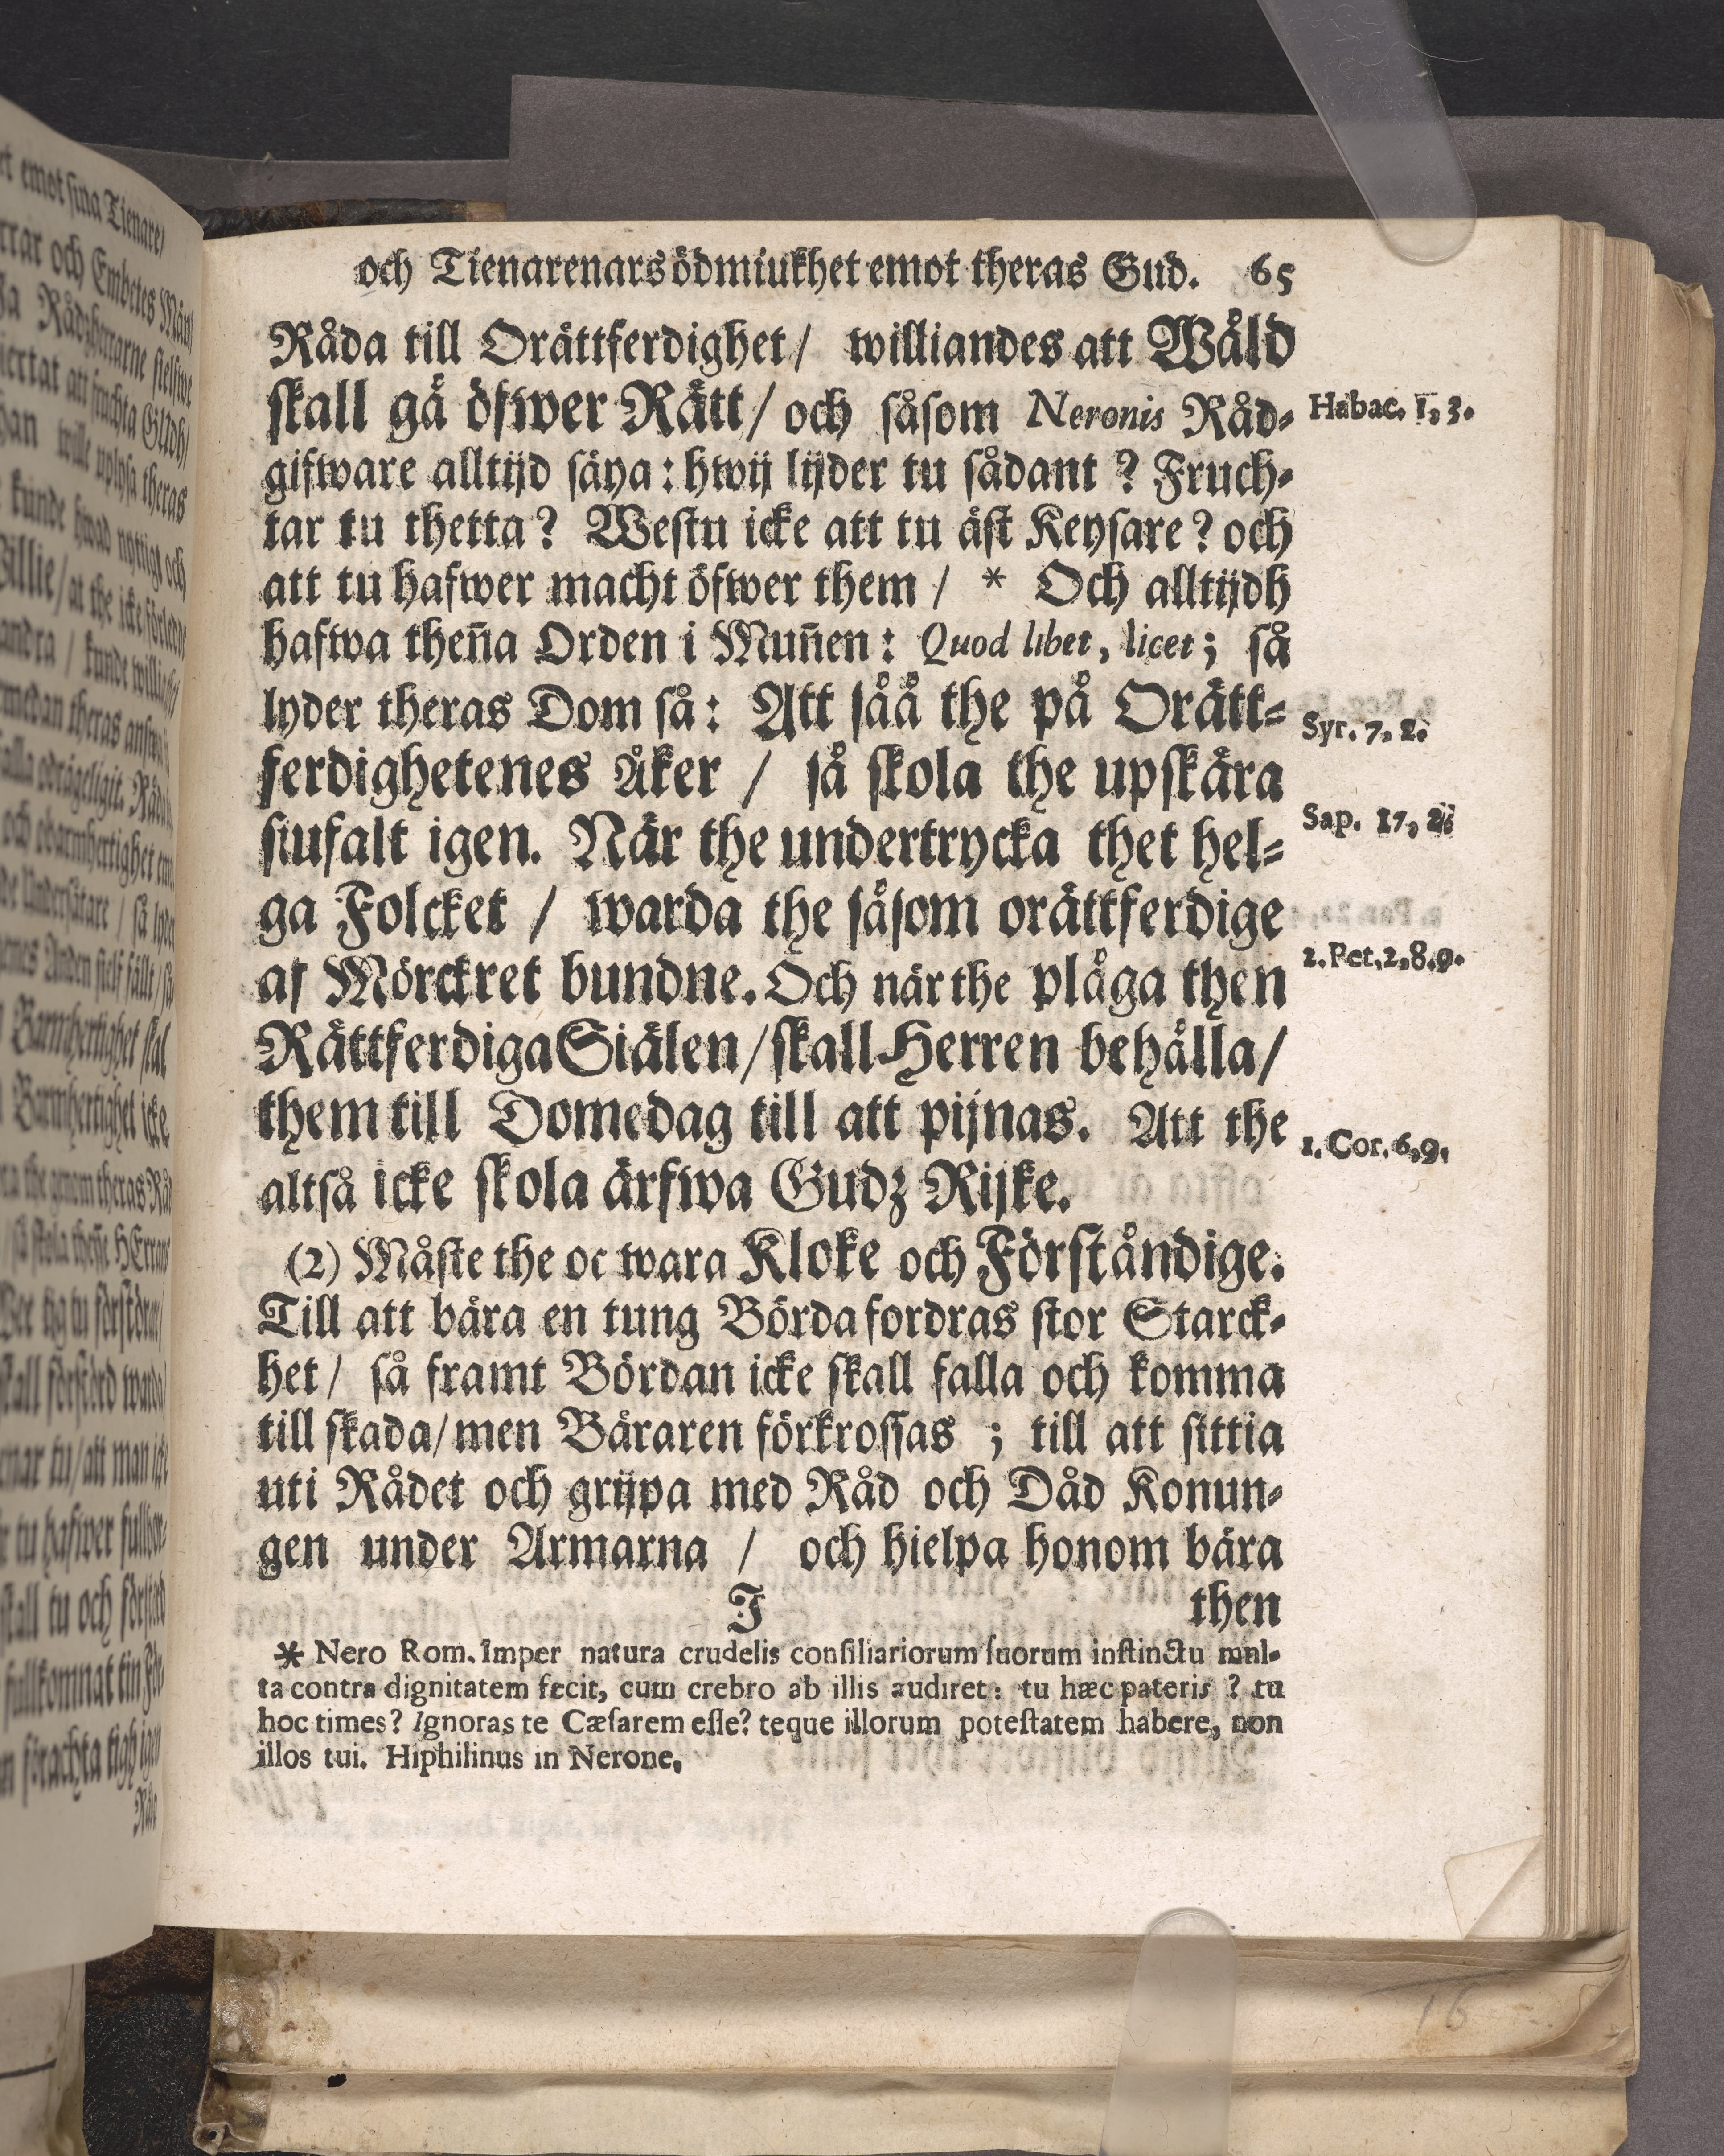 och Tienarenars ödmiukhet emot theras Gud. 65
Råda till Orättferdighet / williandes att Wåld
skall gå öfwer Rätt / och såsom Neronis Råd-
Habac. 1, 3.
gifware alltijd säya: hwij lijder tu sådant? Fruch-
tar tu thetta? Westu icke att tu äst Keysare? och
att tu hafwer macht öfwer them / * Och alltijdh
hafwa theña Orden i Muñen: Quod libet, licet; så
lyder theras Dom så: Att såå the på Orätt-
Syr. 7, 2.
ferdighetenes Åker / så skola the upskära
siufalt igen. När the undertrycka thet hel-
Sap. 17, 2.
ga Folcket / warda the såsom orättferdige
af Mörckret bundne. Och när the plåga then
2. Pet. 2, 8. 9.
Rättferdiga Siälen / skall Herren behålla /
them till Domedag till att pijnas. Att the
1. Cor. 6, 9.
altså icke skola ärfwa Gudz Rijke.
(2) Måste the oc wara Kloke och Förståndige.
Till att bära en tung Börda fordras stor Starck-
het / så framt Bördan icke skall falla och komma
till skada / men Båraren förkrossas ; till att sittia
uti Rådet och grijpa med Råd och Dåd Konun-
gen under Armarna / och hielpa honom bära
I then
* Nero Rom. Imper natura crudelis consiliariorum suorum instinctu mul-
ta contra dignitatem fecit, cum crebro ab illis audiret: tu hæc pateris ? tu
hoc times? Ignoras te Cæsarem esse? teque illorum potestatem habere, non
illos tui. Hiphilinus in Nerone.
16